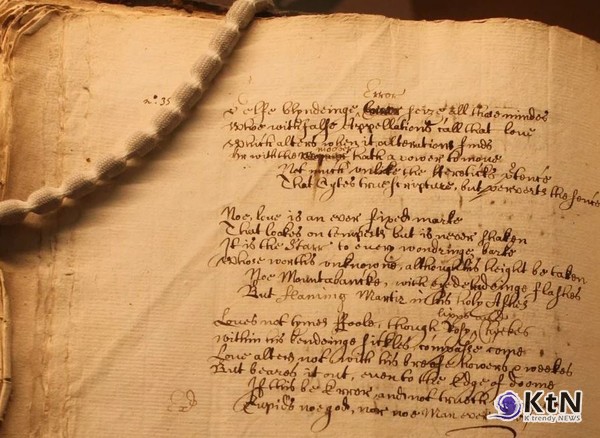 n°. 35
Error
selfe blyndeinge seize all those mindes
Whoe with false Appellations call that love
Which alters when it alterations finds
or with the mover hath a power to move
Not much unlike the Hereticks ptence
That Cytes true scripture, but perverts the sence
Noe, love is an ever fixed marke
That lookes on tempests but is never shaken
It is the starr to every wandringe barke
Whose worth's unknowne, although his height be taken
Noe Mountabancke, with eie deludeinge flashes
But flameing Martir in his holy Ashes
Loves not tymes foole, though Rosy lipps & cheekes
within his bendeinge sickles compasse come
Love alters not with his breefe howers & weekes
But beares it out, even to the Edge of doome
If this be Error and not truth
Cupids noe god, nor noe Man ever
KtN
K trendy NEWS